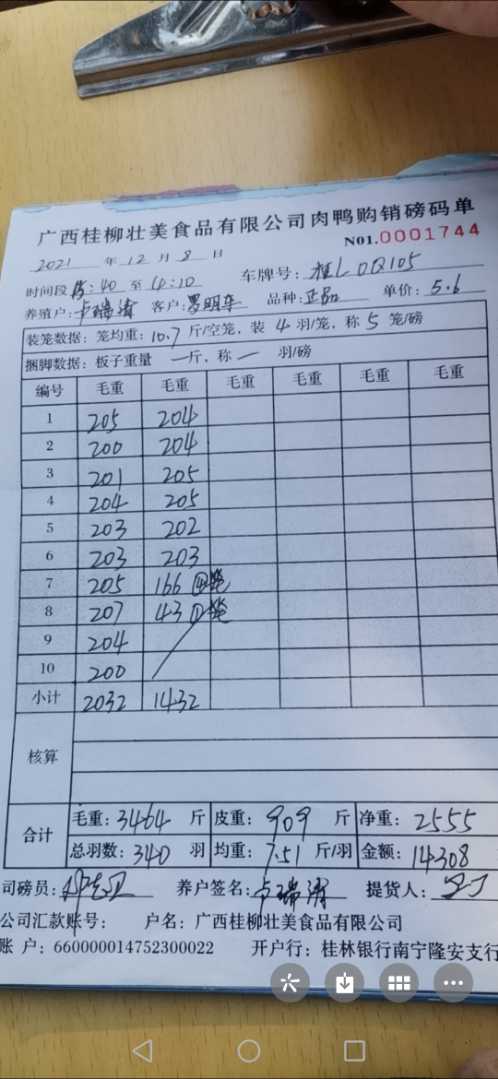 广西桂柳壮美食品有限公司肉鸭购销磅码单
2021 年 12 月 8 日 N01.0001744
时间段 :40 至 14:10 车牌号: 桂L 0Q105
养殖户: 卢瑞涛 客户: 罗明车 品种: 正品 单价: 5.6
装笼数据: 笼均重: 10.7 斤/空笼, 装 4 羽/笼, 称 5 笼/磅
捆脚数据: 板子重量 — 斤, 称 — 羽/磅
编号 毛重 毛重 毛重 毛重 毛重 毛重
1 205 204
2 200 204
3 201 205
4 204 205
5 203 202
6 203 203
7 205 166 ④笼
8 207 43 ①笼
9 204
10 200
小计 2032 1432
核算
合计 毛重: 3464 斤 皮重: 909 斤 净重: 2555
总羽数: 340 羽 均重: 7.51 斤/羽 金额: 14308
司磅员: 养户签名: 卢瑞涛 提货人:
公司汇款账号: 户名: 广西桂柳壮美食品有限公司
账 户: 660000014752300022 开户行: 桂林银行南宁隆安支行